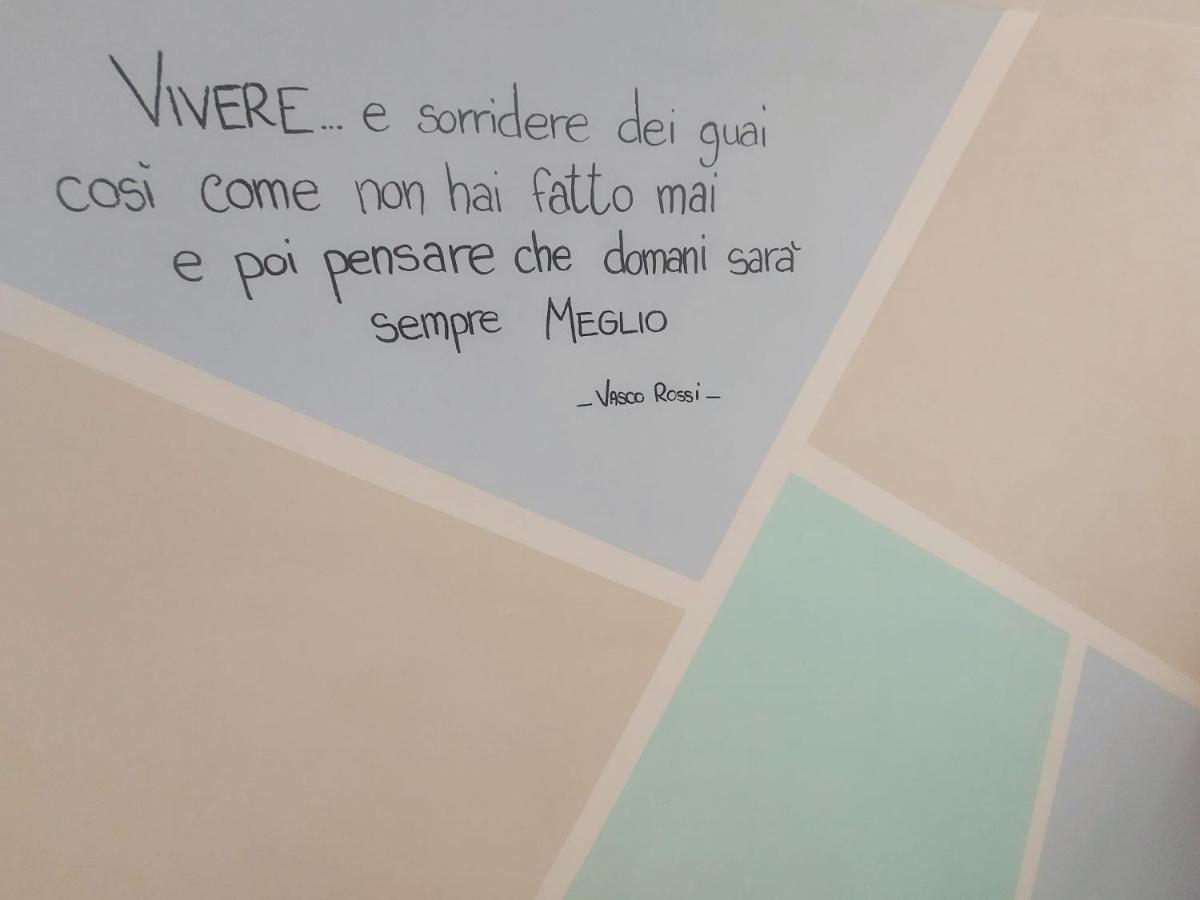 VIVERE... e sorridere dei guai
così come non hai fatto mai
e poi pensare che domani sarà
sempre MEGLIO
_VASCO ROSSI_